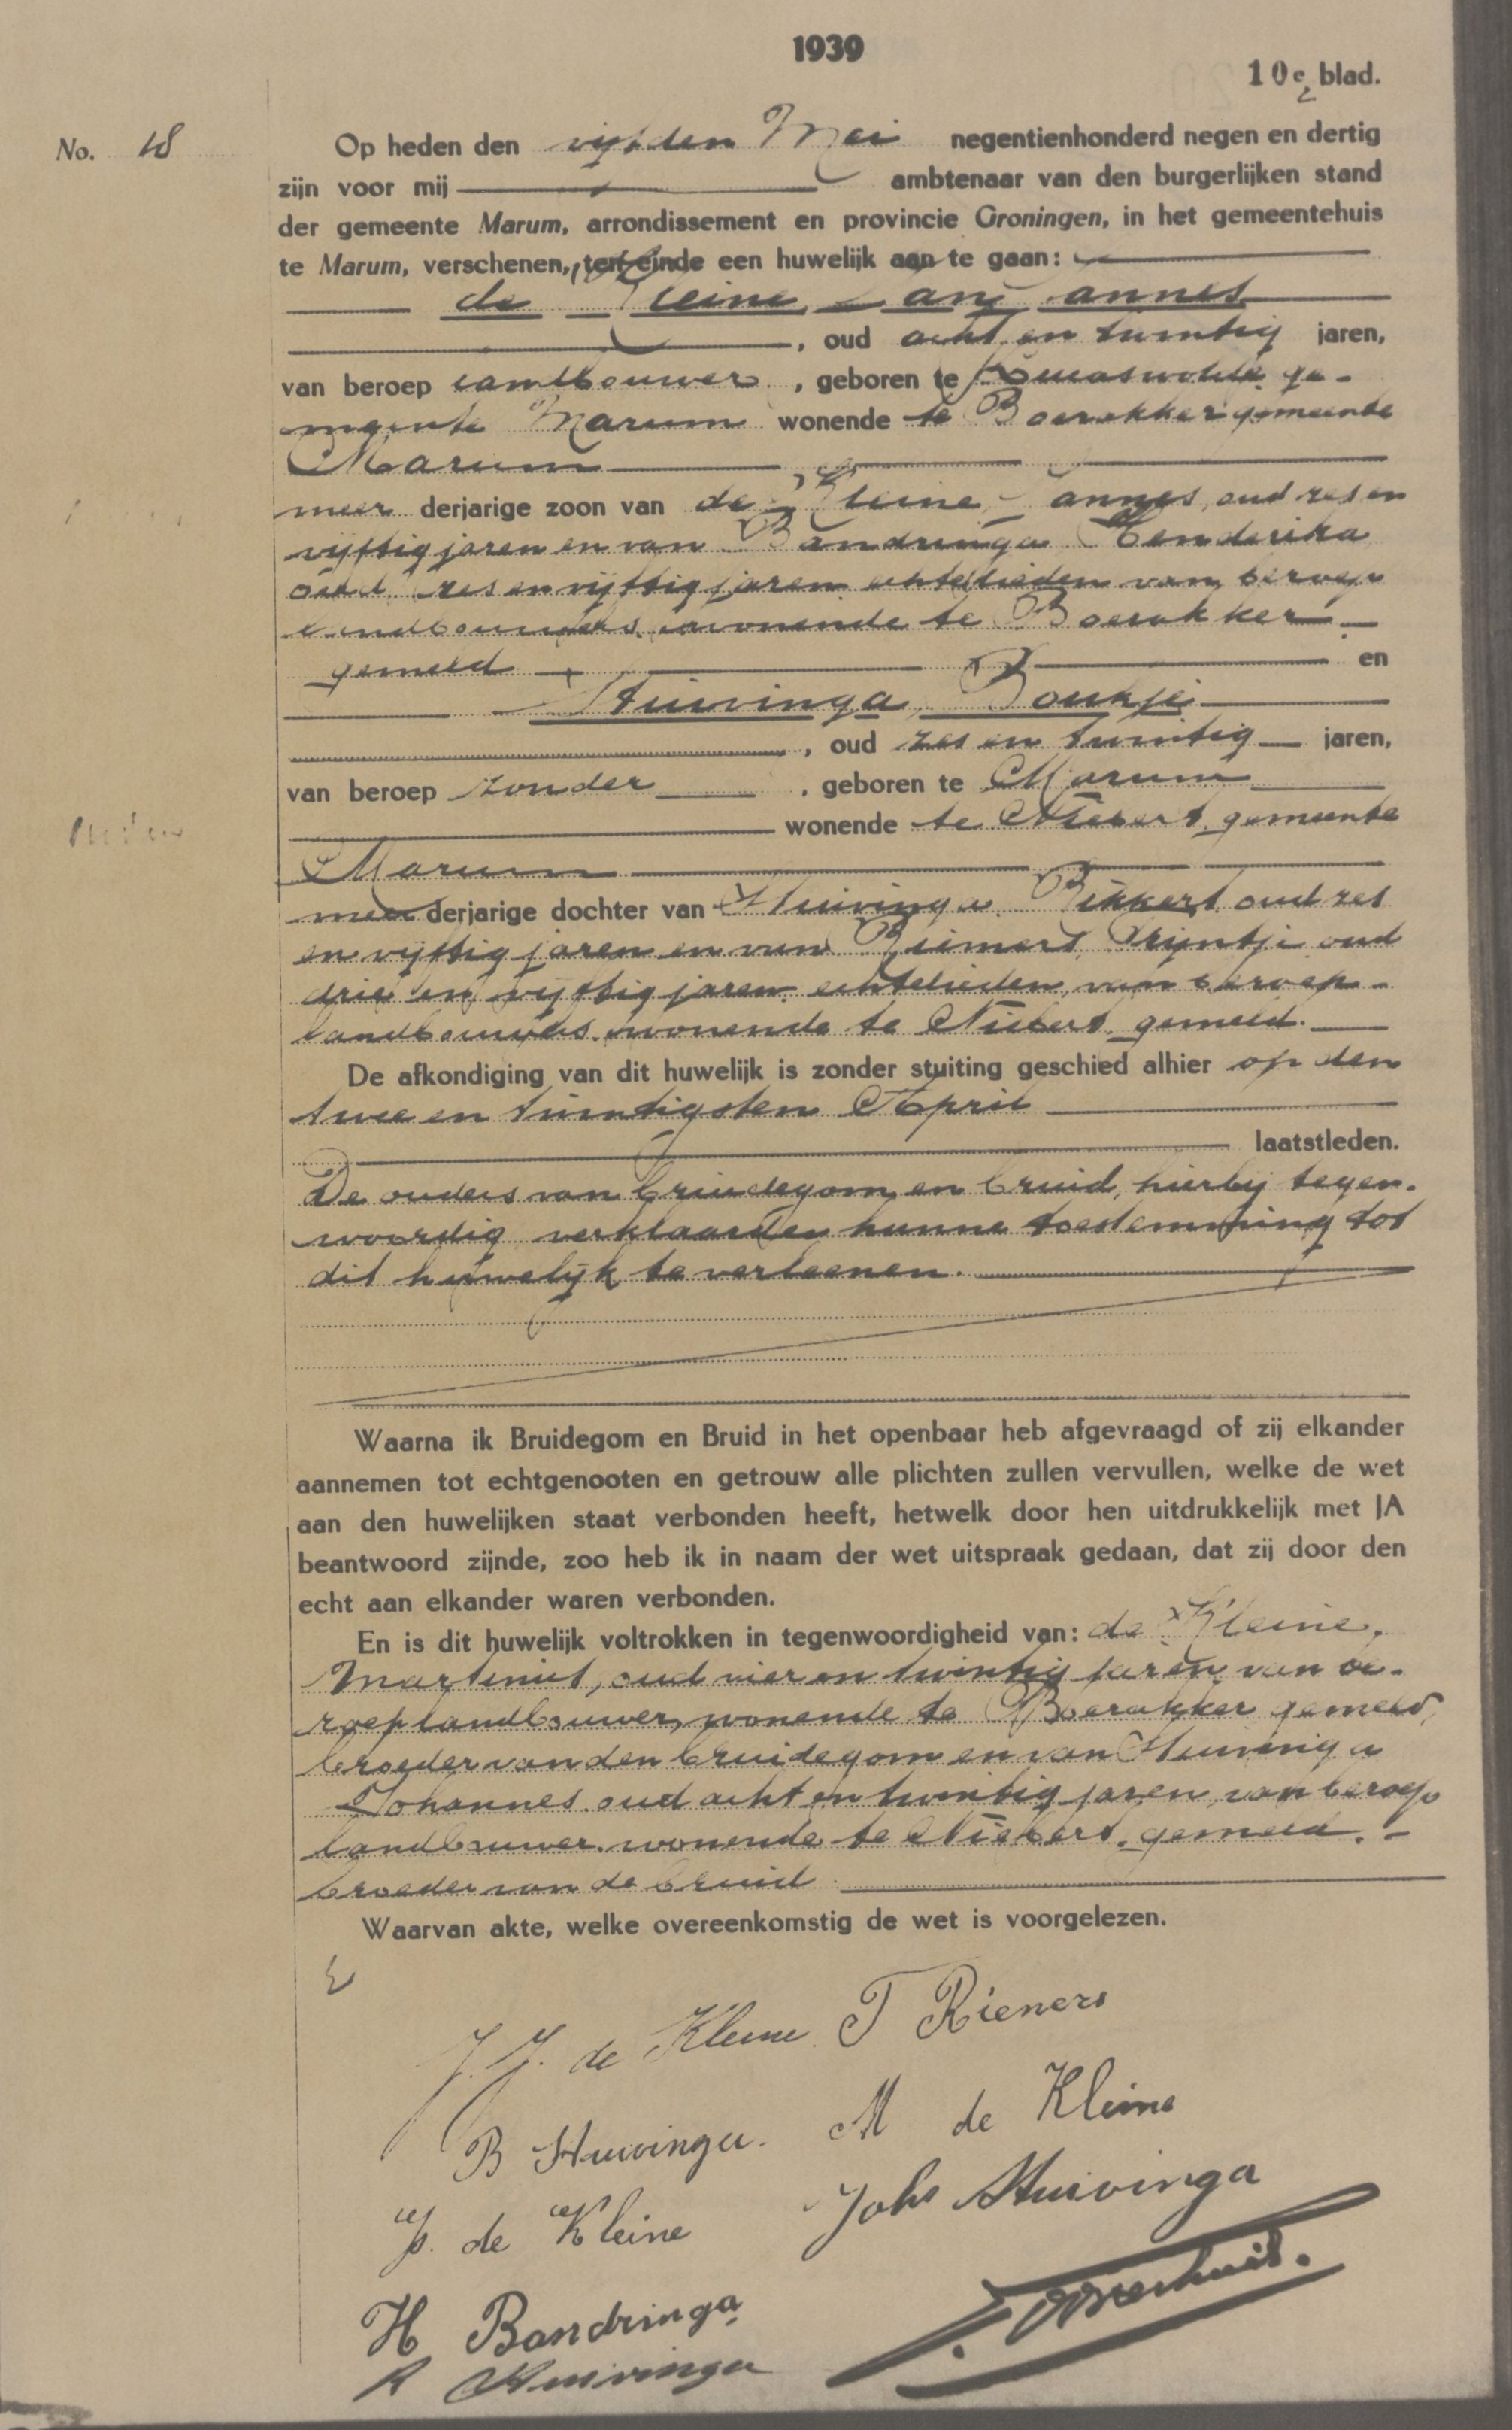 1939
10e blad.
No. 18
Op heden den vijfden Mei negentienhonderd negen en dertig
zijn voor mij ambtenaar van den burgerlijken stand
der gemeente Marum, arrondissement en provincie Groningen, in het gemeentehuis
te Marum, verschenen, ten einde een huwelijk aan te gaan:
de Kleine, Jan Jannes
, oud acht en twintig jaren,
van beroep landbouwer, geboren te Lucaswolde ge-
meente Marum wonende te Boerakker gemeente
Marum
meer derjarige zoon van de Kleine, Jannes, oud zes en
vijftig jaren en van Bandringa Henderika
oud zes en vijftig jaren echtelieden van beroep
landbouwers, wonende te Boerakker
gemeld en
Huivinga, Boukje
, oud zes en twintig jaren,
van beroep zonder, geboren te Marum
wonende te Niebert gemeente
Marum
meer derjarige dochter van Huivinga, Rikkert oud zes
en vijftig jaren en van Riemers, Trijntje oud
drie en vijftig jaren echtelieden, van beroep
landbouwers, wonende te Niebert gemeld.
De afkondiging van dit huwelijk is zonder stuiting geschied alhier op den
twee en twintigsten April
laatstleden.
De ouders van bruidegom en bruid, hierbij tegen-
woordig verklaarden hunne toestemming tot
dit huwelijk te verleenen.
Waarna ik Bruidegom en Bruid in het openbaar heb afgevraagd of zij elkander
aannemen tot echtgenooten en getrouw alle plichten zullen vervullen, welke de wet
aan den huwelijken staat verbonden heeft, hetwelk door hen uitdrukkelijk met JA
beantwoord zijnde, zoo heb ik in naam der wet uitspraak gedaan, dat zij door den
echt aan elkander waren verbonden.
En is dit huwelijk voltrokken in tegenwoordigheid van: de Kleine,
Martinus, oud vier en twintig jaren van be-
roep landbouwer, wonende te Boerakker gemeld,
broeder van den bruidegom en van Huivinga
Johannes oud acht en twintig jaren, van beroep
landbouwer, wonende te Niebert, gemeld.
broeder van de bruid
Waarvan akte, welke overeenkomstig de wet is voorgelezen.
J. J. de Kleine T Riemers
B Huivinga. M de Kleine
J. de Kleine Johs Huivinga
H Bandringa
R Huivinga